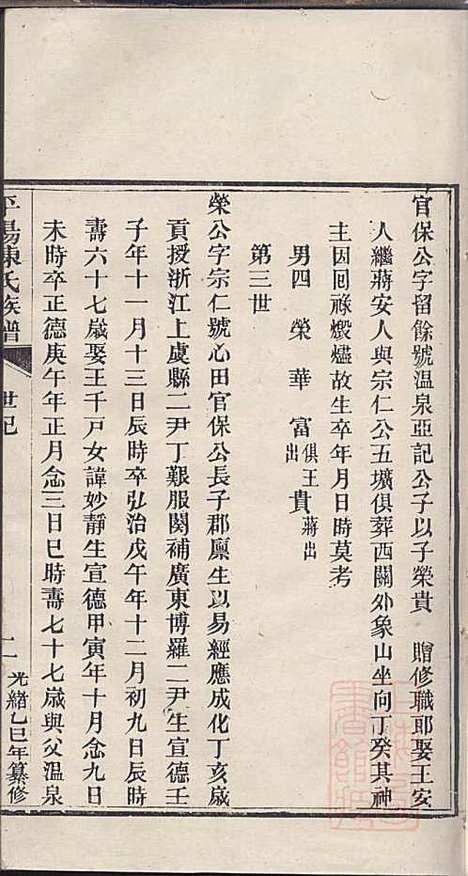 官保公字留餘號溫泉亞記公子以子榮貴　贈修職郎娶王安
人繼蔣安人與宗仁公五壙俱葬西關外象山坐向丁癸其神
主因囘祿燬燼故生卒年月日時莫考
男四　榮　華　富俱王出　貴蔣出
第三世
榮公字宗仁號心田官保公長子郡廩生以易經應成化丁亥歲
貢授浙江上虞縣二尹丁艱服闋補廣東博羅二尹生宣德壬
子年十一月十三日辰時卒弘治戊午年十二月初九日辰時
壽六十七歲娶王千戶女諱妙靜生宣德甲寅年十月念九日
未時卒正德庚午年正月念三日巳時壽七十七歲與父溫泉
平陽陳氏族譜　世紀　二　光緒乙巳年纂修